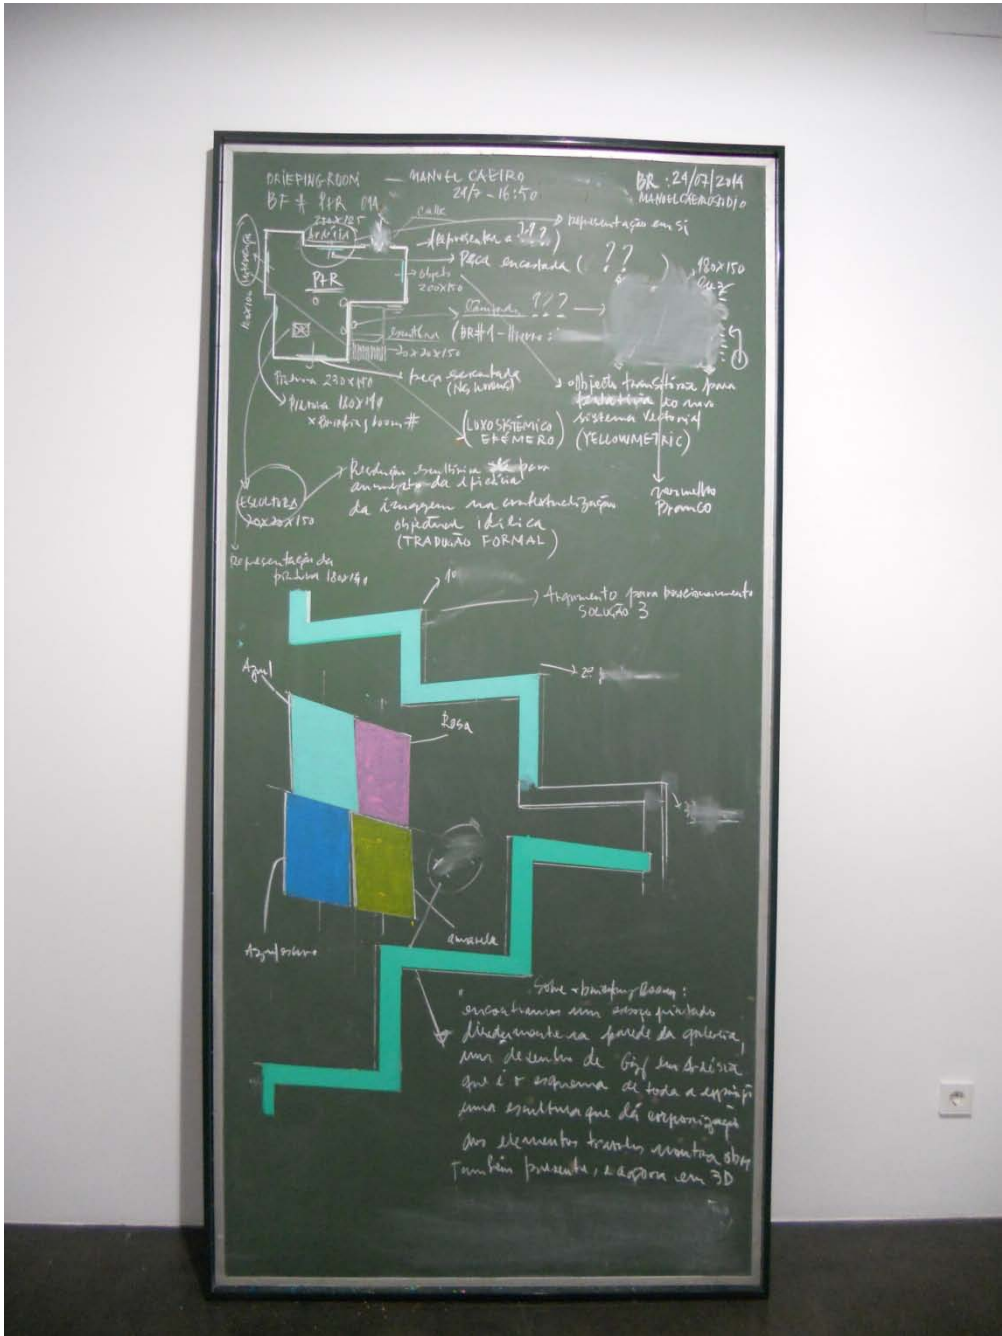 BRIEFING-ROOM — MANUEL CAEIRO
29/7 - 16:50
BR : 29/07/2014
MANUELCAEIROSTUDIO
BF # P+R MA
220x185
ardósia
calle
representação em si
(representar a ???)
Peça encastrada ( ?? )
180x150
P+R
objeto
200x150
???
escultura (BR#1 -
20x20x150
peça encastrada
Pintura 230x150
Pintura 180x190
x Briefing Room #
(LUXO SISTÉMICO
EFÉMERO)
objecto transitório para
ao novo
sistema vectorial
(YELLOWMETRIC)
vermelho
Branco
ESCULTURA
20x20x150
Redução escultórica para
aumento da eficácia
da imagem na contextualização
objectual idílica
(TRADUÇÃO FORMAL)
Representação da
pintura 180x190
1º
Argumento para posicionamento
SOLUÇÃO 3
2º
Azul
Rosa
3
Azul escuro
amarelo
Sobre o briefing Room:
encontramos um esboço pintado
directamente na parede da galeria,
um desenho de em ardósia
que é o esquema de toda a exposição
uma escultura que dá corporização
aos elementos noutra obra
Também presente, e agora em 3D